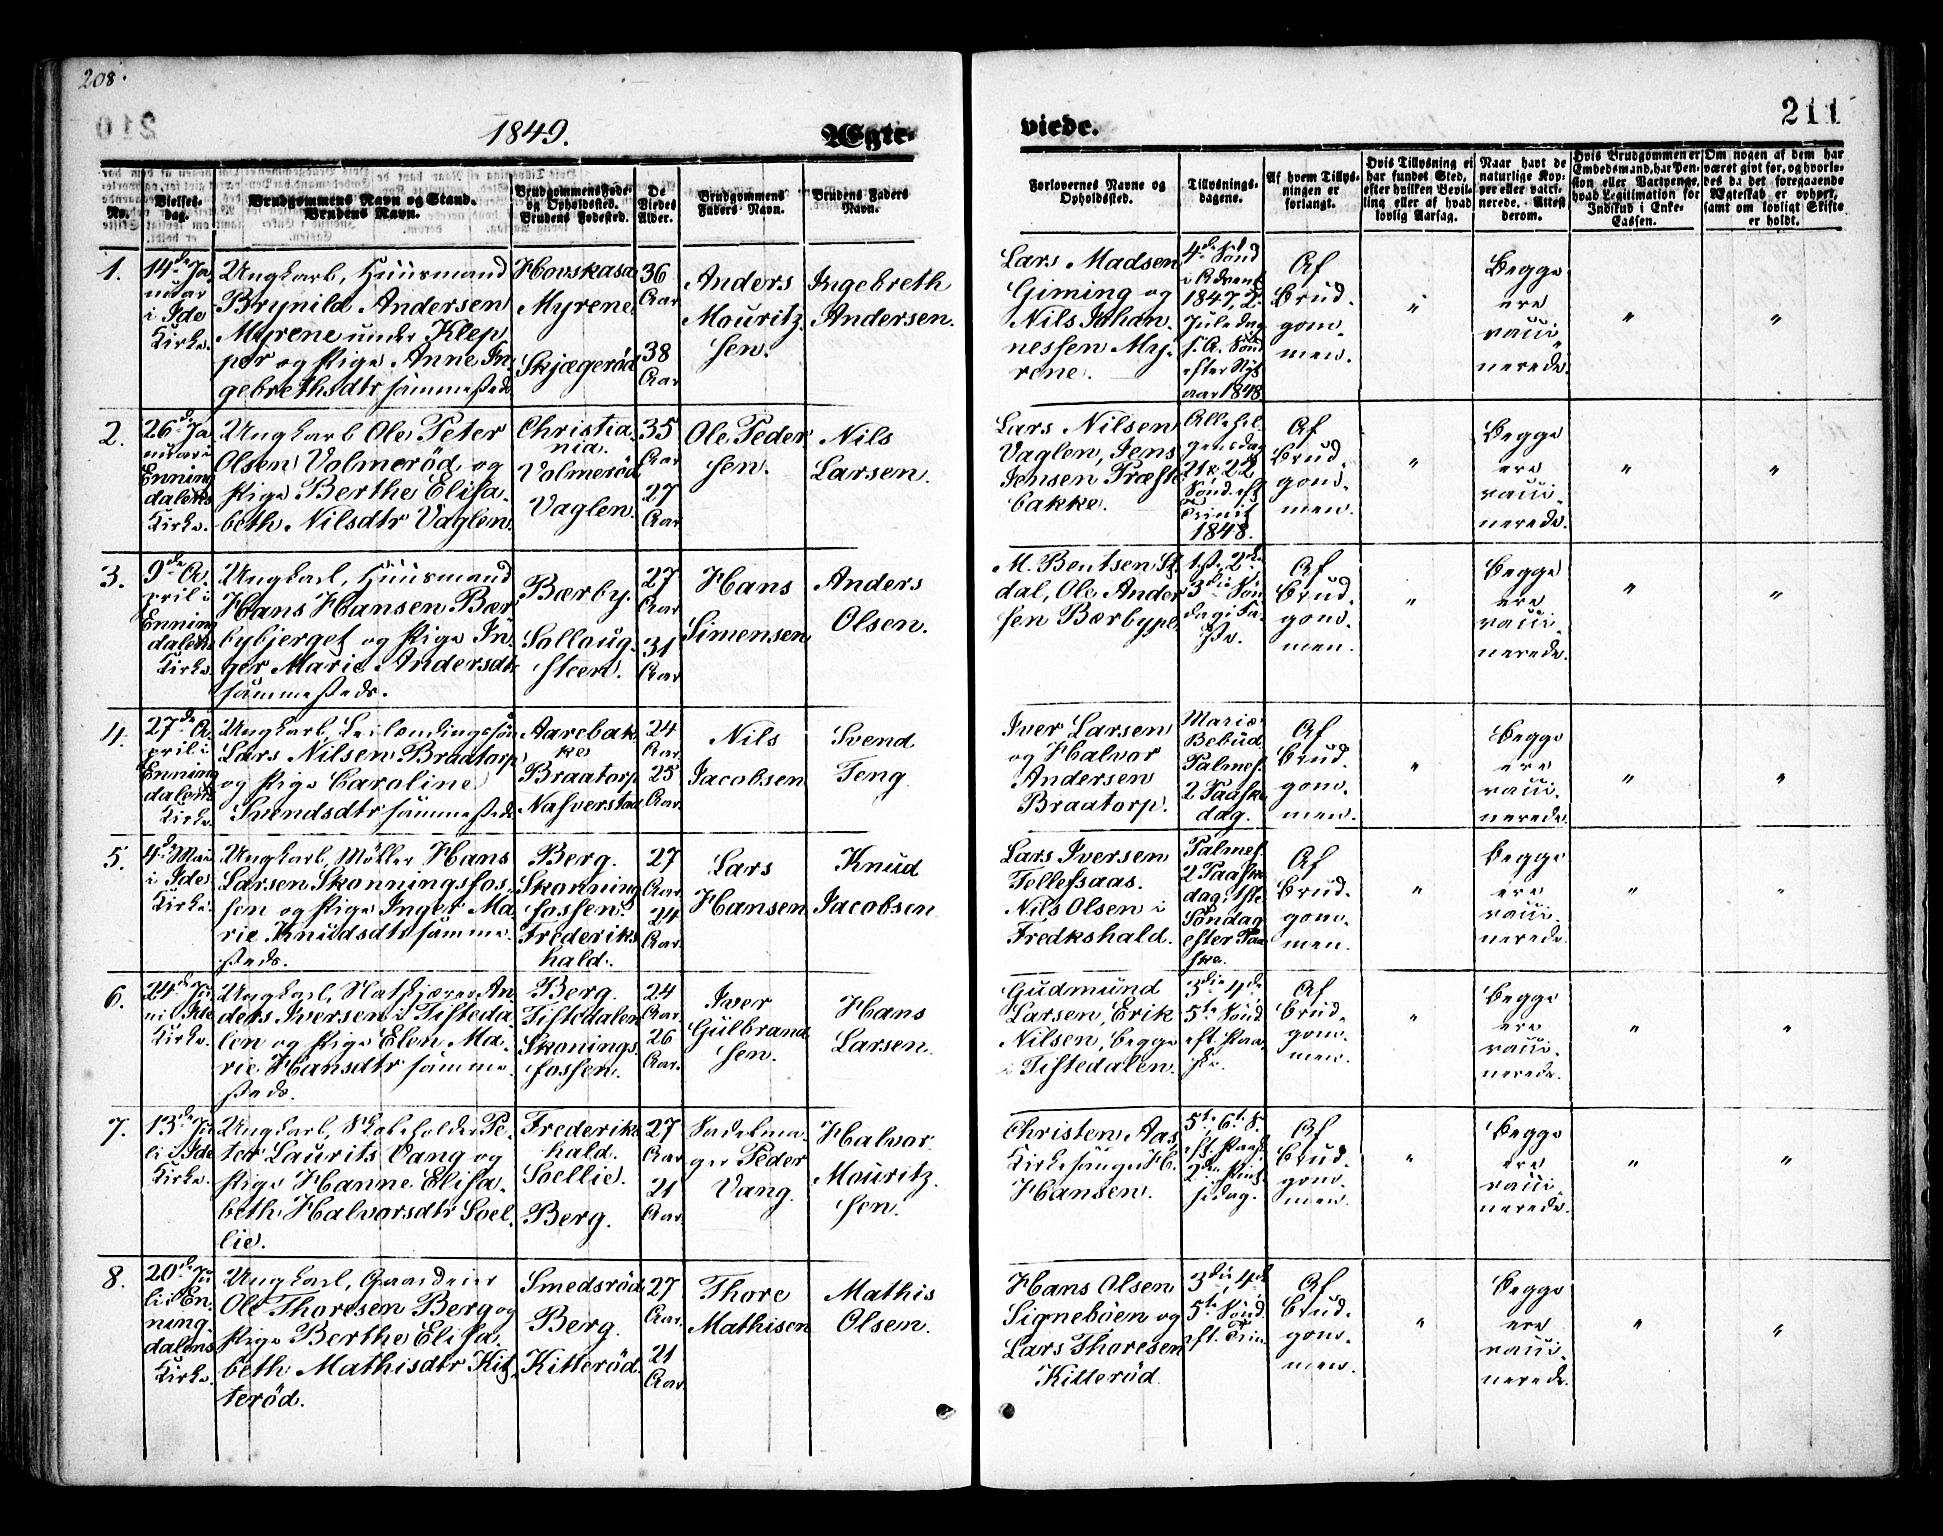 208.
1849.
Ægte-
No.
Vielses-
dag.
Brudgommens Navn og Stand.
Brudens Navn.
Brudgommens Føde-
og Opholdssted.
Brudens Fødested.
De
Viedes
Alder.
Brudgommens
Faders Navn.
Brudens Faders
Navn.
1.
14de Ja
nuar
i Ide
Kirke.
Ungkarl, Huusmand
Brynild Andersen
Myrene under Klep
per og Pige Anne In
gebrethsdtr sammesteds
Hovskasa
Myrene
Skjægerød
36
Aar
38
Aar
Anders
Mouritz
sen.
Ingebreth
Andersen.
2.
26de Ja
nuar i
Enning
dalens
Kirke.
Ungkarl Ole Peter
Olsen Volmerød, og
Pige Berthe Elisa
beth Nilsdtr Vaglen.
Christia
nia.
Volmerød
Vaglen.
35
Aar
27
Aar
Ole Peder
sen.
Nils
Larsen.
3.
9de A
pril i
Enning
dalens
Kirke.
Ungkarl, Huusmand
Hans Hansen Bær
bybjerget og Pige In
ger Marie Andersdtr
sammesteds.
Bærby.
Sollaug
steen.
27
Aar
31
Aar
Hans
Simensen
Anders
Olsen.
4.
27de A
pril i
Enning
dalens
Kirke.
Ungkarl, Leilændingssøn
Lars Nilsen Braatorp
og Pige Caroline
Svendsdtr sammesteds
Aarebak
ke
Braatorp
Nasverstad
24
Aar
25
Aar
Nils
Jacobsen
Svend
Teng.
5.
4de Mai
i Ide
Kirke.
Ungkarl, Møller Hans
Larsen Skonningsfos
sen og Pige Inger Ma
rie Knudsdtr samme
steds.
Berg.
Skonning
fossen.
Frederiks
hald.
27
Aar
24
Aar
Lars
Hansen
Knud
Jacobsen
6.
24de Ju
ni i Ide
Kirke.
Ungkarl, Natkjører An
ders Iversen i Tisteda
len og Pige Elen Ma
rie Hansdtr samme
steds.
Berg.
Tistedalen
Skonings
fossen.
24
Aar
26
Aar.
Iver
Gulbrand
sen.
Hans
Larsen.
7.
13de Ju
li i Ide
Kirke.
Ungkarl, Skoleholder Pe
ter Laurits Vang og
Pige Hanne Elisa
beth Halvorsdtr Soel
lie.
Frederiks
hald.
Soellie.
Berg.
27
Aar
21
Aar.
Sadelma
ger Peder
Vang.
Halvor
Mouritz
sen.
8.
20de Ju
li i En
ning
dalens
Kirke.
Ungkarl, Gaardeier
Ole Thoresen Berg og
Pige Berthe Elisa
beth Mathisdtr Kit
terød.
Smedsrød
Berg.
Kitterød.
27
Aar.
21
Aar
Thore
Mathisen
Mathis
Olsen.
viede.
211
Forlovernes Navne og
Opholdssted.
Tillysnings-
dagene.
Af hvem Tillys-
ningen er
forlangt.
Hvis Tillysning ei
har fundet Sted,
efter hvilken Bevil-
ling eller af hvad
lovlig Aarsag.
Naar havt de
naturlige Kop-
per eller vacci-
nerede. Attest
derom.
Hvis Brudgommen er
Embedsmand, har Pen-
sion eller Vartpenge,
hvad Legitimation for
Indskud i Enke-
Cassen.
Om nogen af dem har
været gift før, og hvorle-
des da det foregaaende
Ægteskab er ophørt,
samt om lovligt Skifte
er holdt.
Lars Madsen
Giming og
Nils Johan
nessen My
rene.
4de Sønd
i Advent
1847, 2.
Juledag
S. A. Sønd
efter Nyt
aar 1848
Af
Brud
gom
men.
"
Begge
ere
vacci
nerede.
"
"
Lars Nilsen
Vaglen, Jens
Jensen Præste
bakke.
Allehel
gensdag
21 & 22
Sønd. eft
Trinit
1848.
Af
Brud
gom
men.
"
Begge
ere
vacci
nerede.
"
"
M. Bentsen
dal, Ole Ander
sen Bærbypl.
1ste, 2den
3die Søn
dag i Fa
ste.
Af
Brud
gom
men.
"
Begge
ere
vacci
nerede.
"
"
Iver Larsen
og Halvor
Andersen
Braatorp.
Mariæ
Bebud
Palmes.
2 Paaske
dag.
Af
Brud
gom
men.
"
Begge
ere
vacci
nerede.
"
"
Lars Iversen
Tellefsaas.
Nils Olsen i
Fredkshald.
Palmes.
2 Paaske
dag, 1ste
Søndag
efter Paa
ske.
Af
Brud
gom
men.
"
Begge
ere
vacci
nerede.
"
"
Gudmund
Larsen, Erik
Nilsen, begge
i Tistedalen.
3die 4de
5te Sønd
eft. Paa
ske.
Af
Brud
gom
men.
"
Begge
ere
vacci
nerede.
"
"
Christen Aas,
Kirkesanger H.
Hansen.
5te, 6te S.
eft. Paas.
2den Pint
sedag.
Af
Brud
gom
men.
"
Begge
ere
vacci
nerede.
"
"
Hans Olsen
Signebøen og
Lars Thoresen
Kitterød
3die, 4de
5te Sønd.
eft. Trin.
Af
Brud
gom
men.
"
Begge
ere
vacci
nerede.
"
"